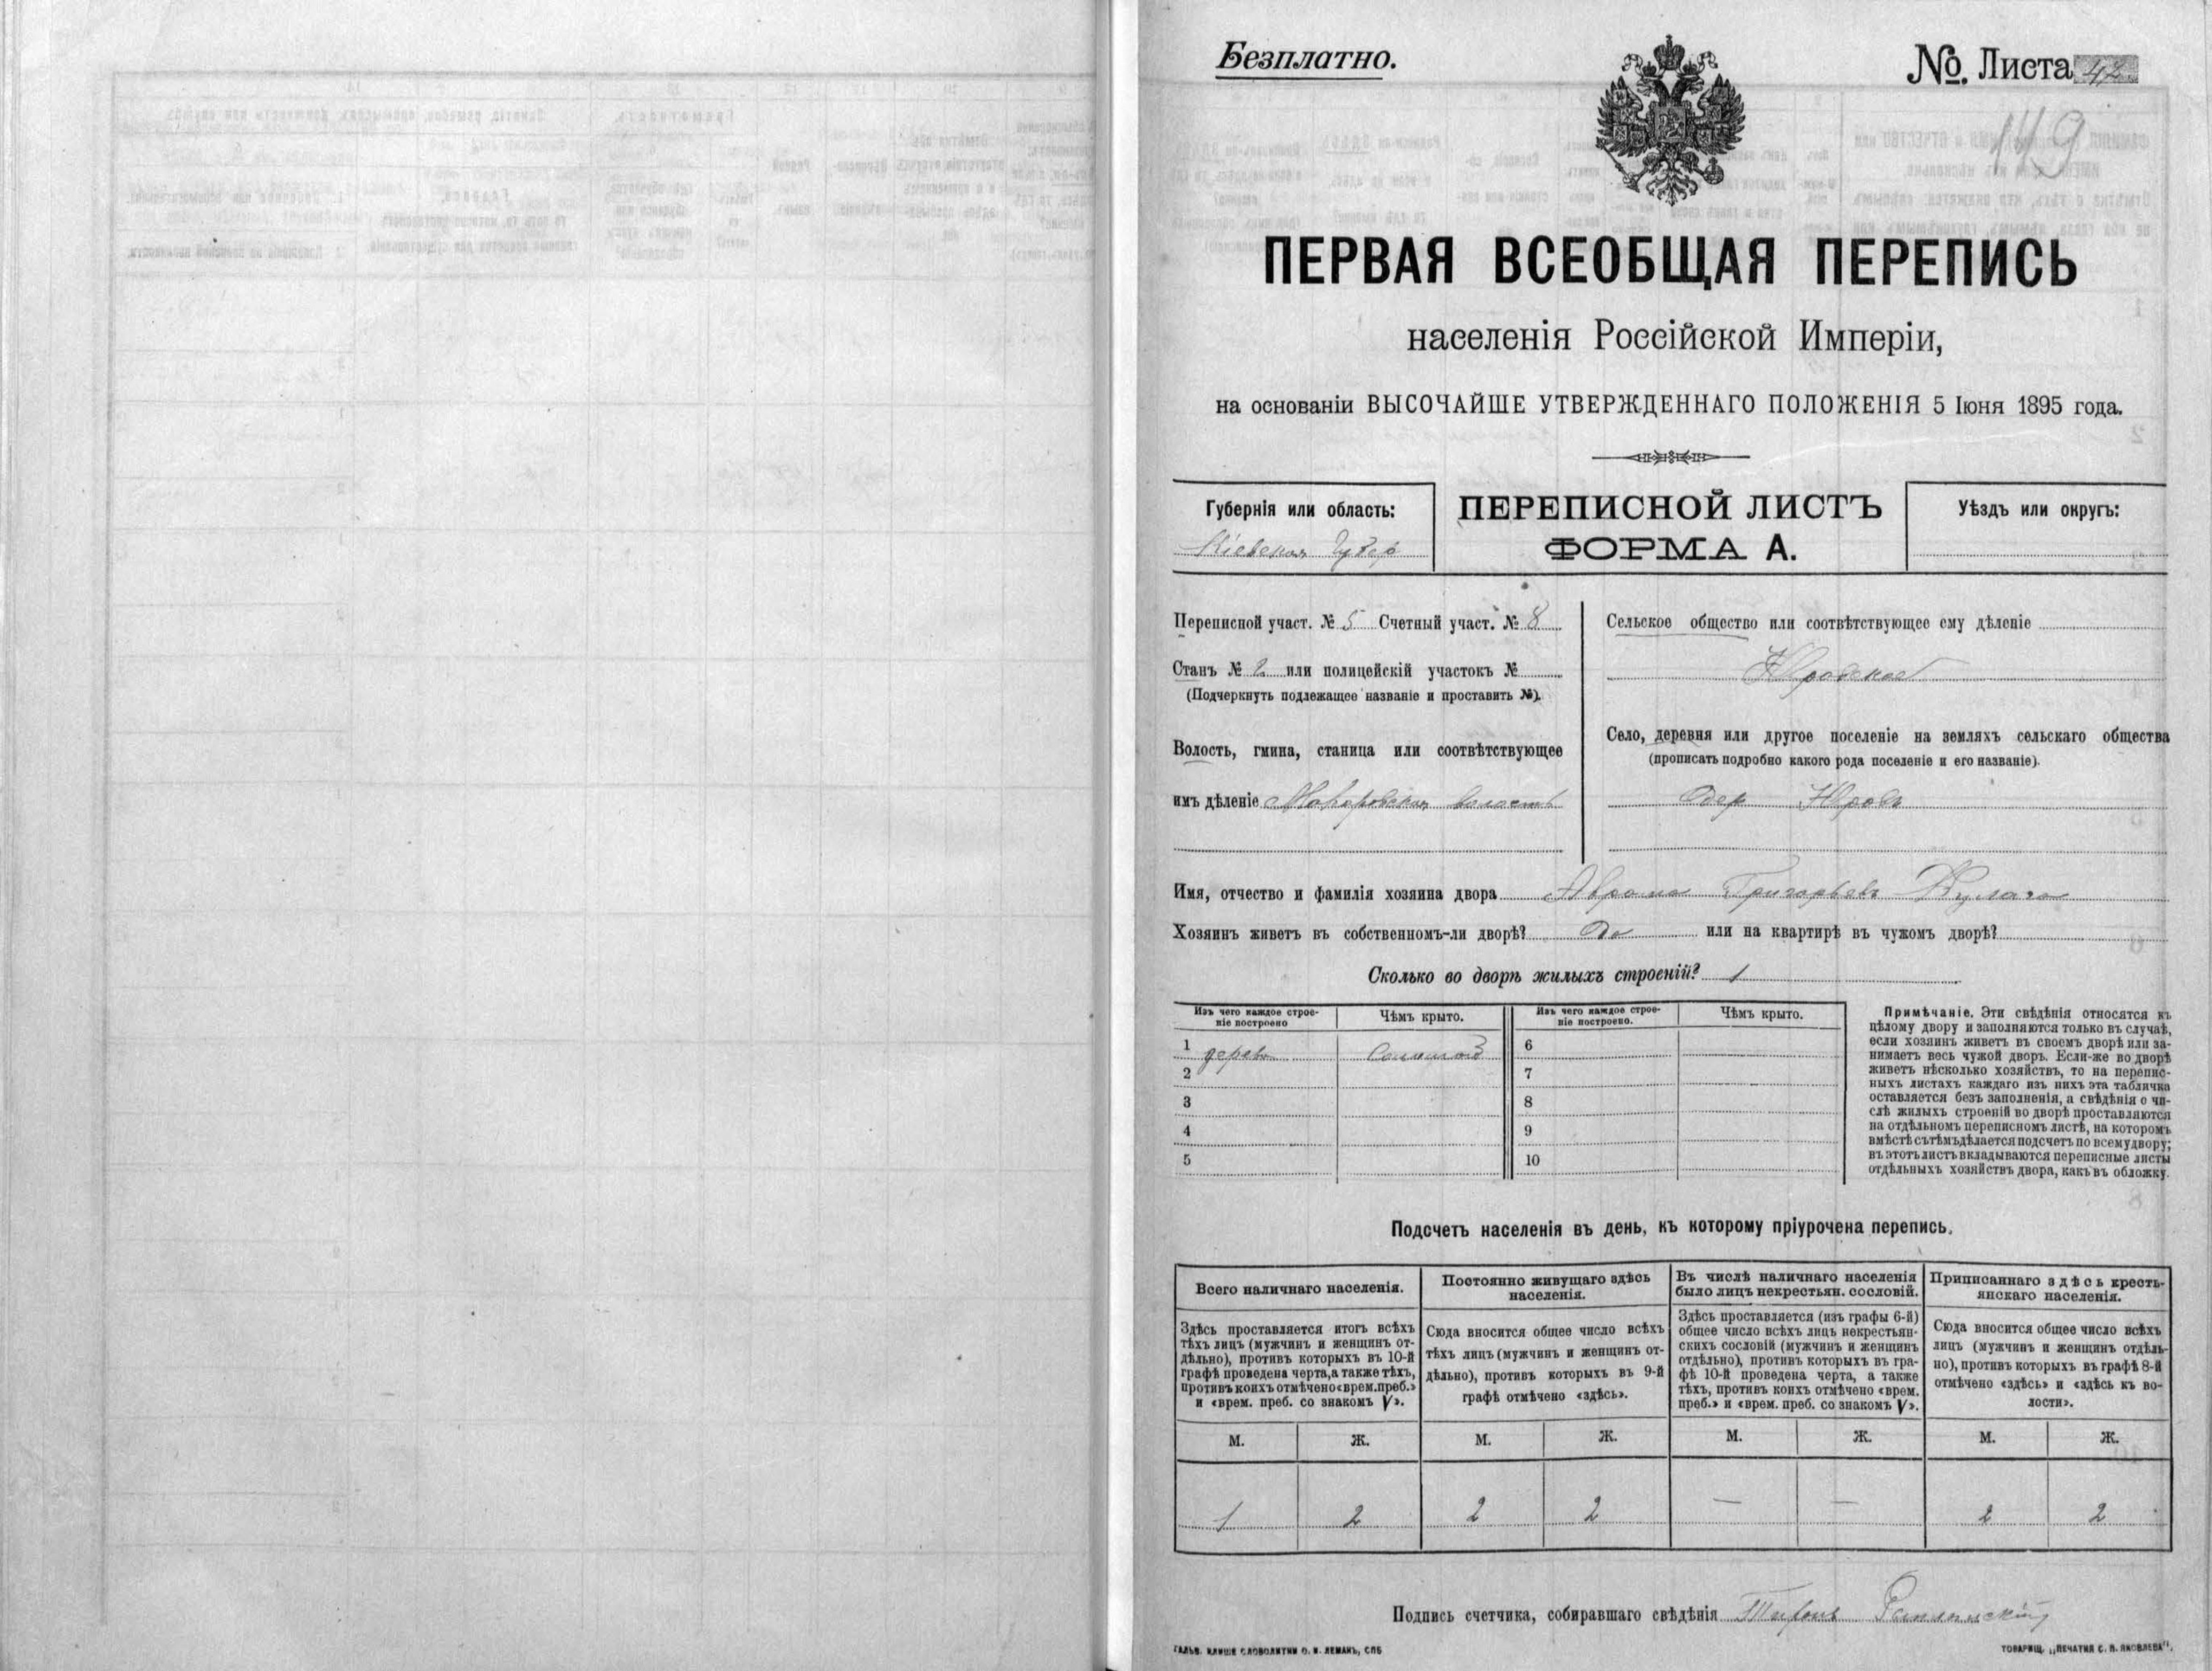 Безплатно.
№. Листа 42
149
ПЕРВАЯ ВСЕОБЩАЯ ПЕРЕПИСЬ
населенія Россійской Имперіи,
на основаніи ВЫСОЧАЙШЕ УТВЕРЖДЕННАГО ПОЛОЖЕНІЯ 5 Іюня 1895 года.
Губернія или область:
Кіевская Губер
ПЕРЕПИСНОЙ ЛИСТЪ
ФОРМА А.
Уѣздъ или округъ:
Переписной участ. № 5 Счетный участ. № 8
Станъ № 2 или полицейскій участокъ №
(Подчеркнуть подлежащее названіе и проставить №).
Волость, гмина, станица или соотвѣтствующее
имъ дѣленіе Макаровская волость
Сельское общество или соотвѣтствующее ему дѣленіе
Юровское
Село, деревня или другое поселеніе на земляхъ сельскаго общества
(прописать подробно какого рода поселеніе и его названіе).
дер Юровъ
Имя, отчество и фамилія хозяина двора Аврамъ Григорьевъ
Хозяинъ живетъ въ собственномъ-ли дворѣ? Да или на квартирѣ въ чужомъ дворѣ?
Сколько во дворѣ жилыхъ строеній? 1
Изъ чего каждое строе-
ніе построено
Чѣмъ крыто.
Изъ чего каждое строе-
ніе построено.
Чѣмъ крыто.
1 дерева Соломой 6
2 7
3 8
4 9
5 10
Примѣчаніе. Эти свѣдѣнія относятся къ
цѣлому двору и заполняются только въ случаѣ,
если хозяинъ живетъ въ своемъ дворѣ или за-
нимаетъ весь чужой дворъ. Если-же во дворѣ
живетъ нѣсколько хозяйствъ, то на перепис-
ныхъ листахъ каждаго изъ нихъ эта табличка
оставляется безъ заполненія, а свѣдѣнія о чи-
слѣ жилыхъ строеній во дворѣ проставляются
на отдѣльномъ переписномъ листѣ, на которомъ
вмѣстѣ съ тѣмъ дѣлается подсчетъ по всему двору;
въ этотъ листъ вкладываются переписные листы
отдѣльныхъ хозяйствъ двора, какъ въ обложку.
Подсчетъ населенія въ день, къ которому пріурочена перепись.
Всего наличнаго населенія.
Здѣсь проставляется итогъ всѣхъ
тѣхъ лицъ (мужчинъ и женщинъ от-
дѣльно), противъ которыхъ въ 10-й
графѣ проведена черта, а также тѣхъ,
противъ коихъ отмѣчено «врем. преб.»
и «врем. преб. со знакомъ V».
Постоянно живущаго здѣсь
населенія.
Сюда вносится общее число всѣхъ
тѣхъ лицъ (мужчинъ и женщинъ от-
дѣльно), противъ которыхъ въ 9-й
графѣ отмѣчено «здѣсь».
Въ числѣ наличнаго населенія
было лицъ некрестьян. сословій.
Здѣсь проставляется (изъ графы 6-й)
общее число всѣхъ лицъ некрестьян-
скихъ сословій (мужчинъ и женщинъ
отдѣльно), противъ которыхъ въ гра-
фѣ 10-й проведена черта, а также
тѣхъ, противъ коихъ отмѣчено «врем.
преб.» и «врем. преб. со знакомъ V».
Приписаннаго здѣсь кресть-
янскаго населенія.
Сюда вносится общее число всѣхъ
лицъ (мужчинъ и женщинъ отдѣль-
но), противъ которыхъ въ графѣ 8-й
отмѣчено «здѣсь» и «здѣсь къ во-
лости».
М. Ж. М. Ж. М. Ж. М. Ж.
1 2 2 2 — — 2 2
Подпись счетчика, собиравшаго свѣдѣнія
ГАЛЬВ. КЛИШЕ СЛОВОЛИТНИ О. И. ЛЕМАНЪ, СПБ
ТОВАРИЩ. „ПЕЧАТНЯ С. П. ЯКОВЛЕВА".